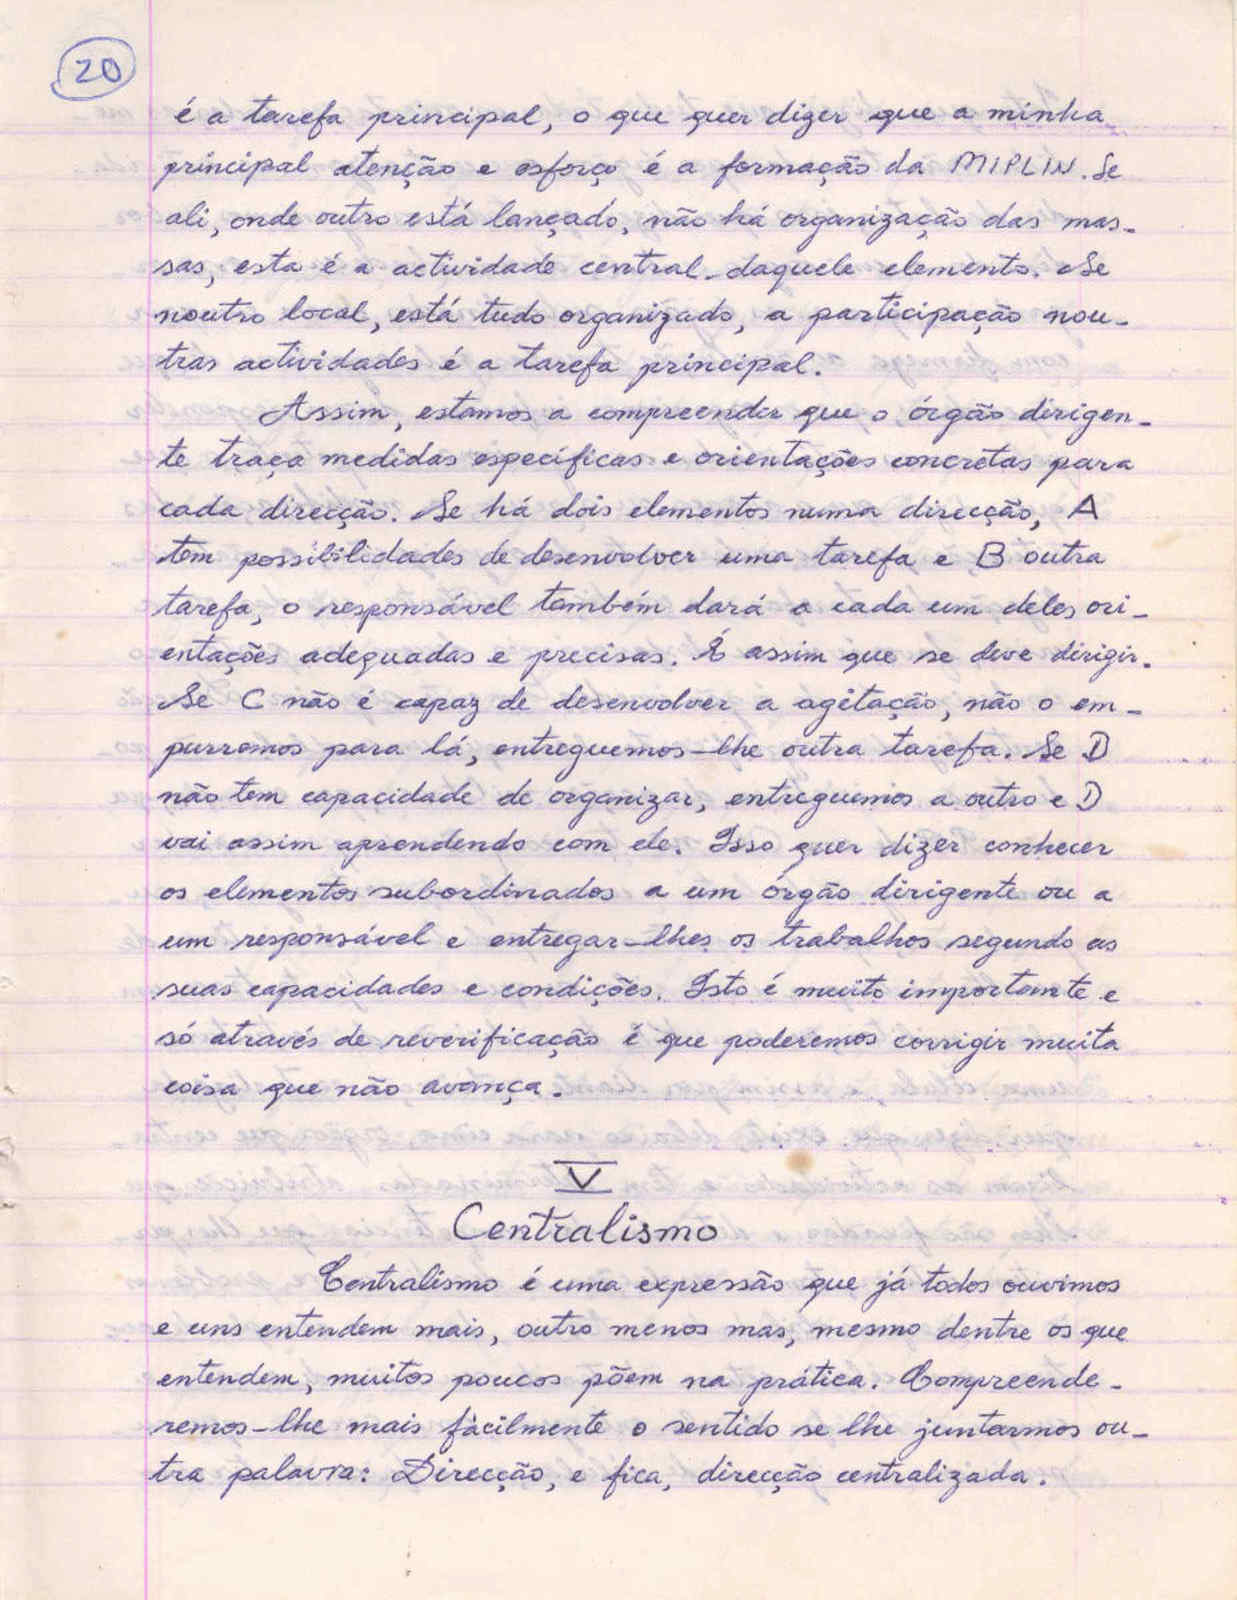 20
é a tarefa principal, o que quer dizer que a minha
principal atenção e esforço é a formação da MIPLIN. Se
ali, onde outro está lançado, não há organização das mas-
sas, esta é a actividade central daquele elemento. Se
noutro local, está tudo organizado, a participação nou-
tras actividades é a tarefa principal.
Assim, estamos a compreender que o órgão dirigen-
te traça medidas específicas e orientações concretas para
cada direcção. Se há dois elementos numa direcção, A
tem possibilidades de desenvolver uma tarefa e B outra
tarefa, o responsável também dará a cada um deles ori-
entações adequadas e precisas. É assim que se deve dirigir.
Se C não é capaz de desenvolver a agitação, não o em-
purremos para lá, entreguemos-lhe outra tarefa. Se D
não tem capacidade de organizar, entreguemos a outro e D
vai assim aprendendo com ele. Isso quer dizer conhecer
os elementos subordinados a um órgão dirigente ou a
um responsável e entregar-lhes os trabalhos segundo as
suas capacidades e condições. Isto é muito importante e
só através de reverificação é que poderemos corrigir muita
coisa que não avança.
V
Centralismo
Centralismo é uma expressão que já todos ouvimos
e uns entendem mais, outro menos mas, mesmo dentre os que
entendem, muitos poucos põem na prática. Compreende-
remos-lhe mais fàcilmente o sentido se lhe juntarmos ou-
tra palavra: Direcção, e fica, direcção centralizada.